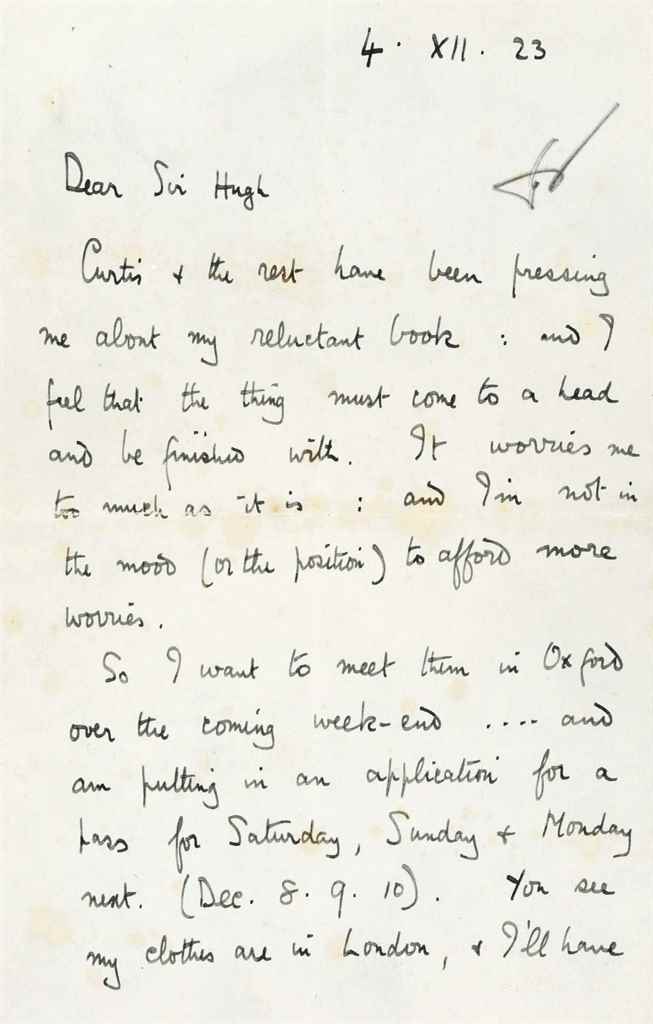 4. XII. 23
Dear Sir Hugh
Curtis & the rest have been pressing
me about my reluctant book : and I
feel that the thing must come to a head
and be finished with. It worries me
too much as it is : and I'm not in
the mood (or the position) to afford more
worries.
So I want to meet them in Oxford
over the coming week-end .... and
am putting in an application for a
pass for Saturday, Sunday & Monday
next. (Dec. 8. 9. 10). You see
my clothes are in London, & I'll have